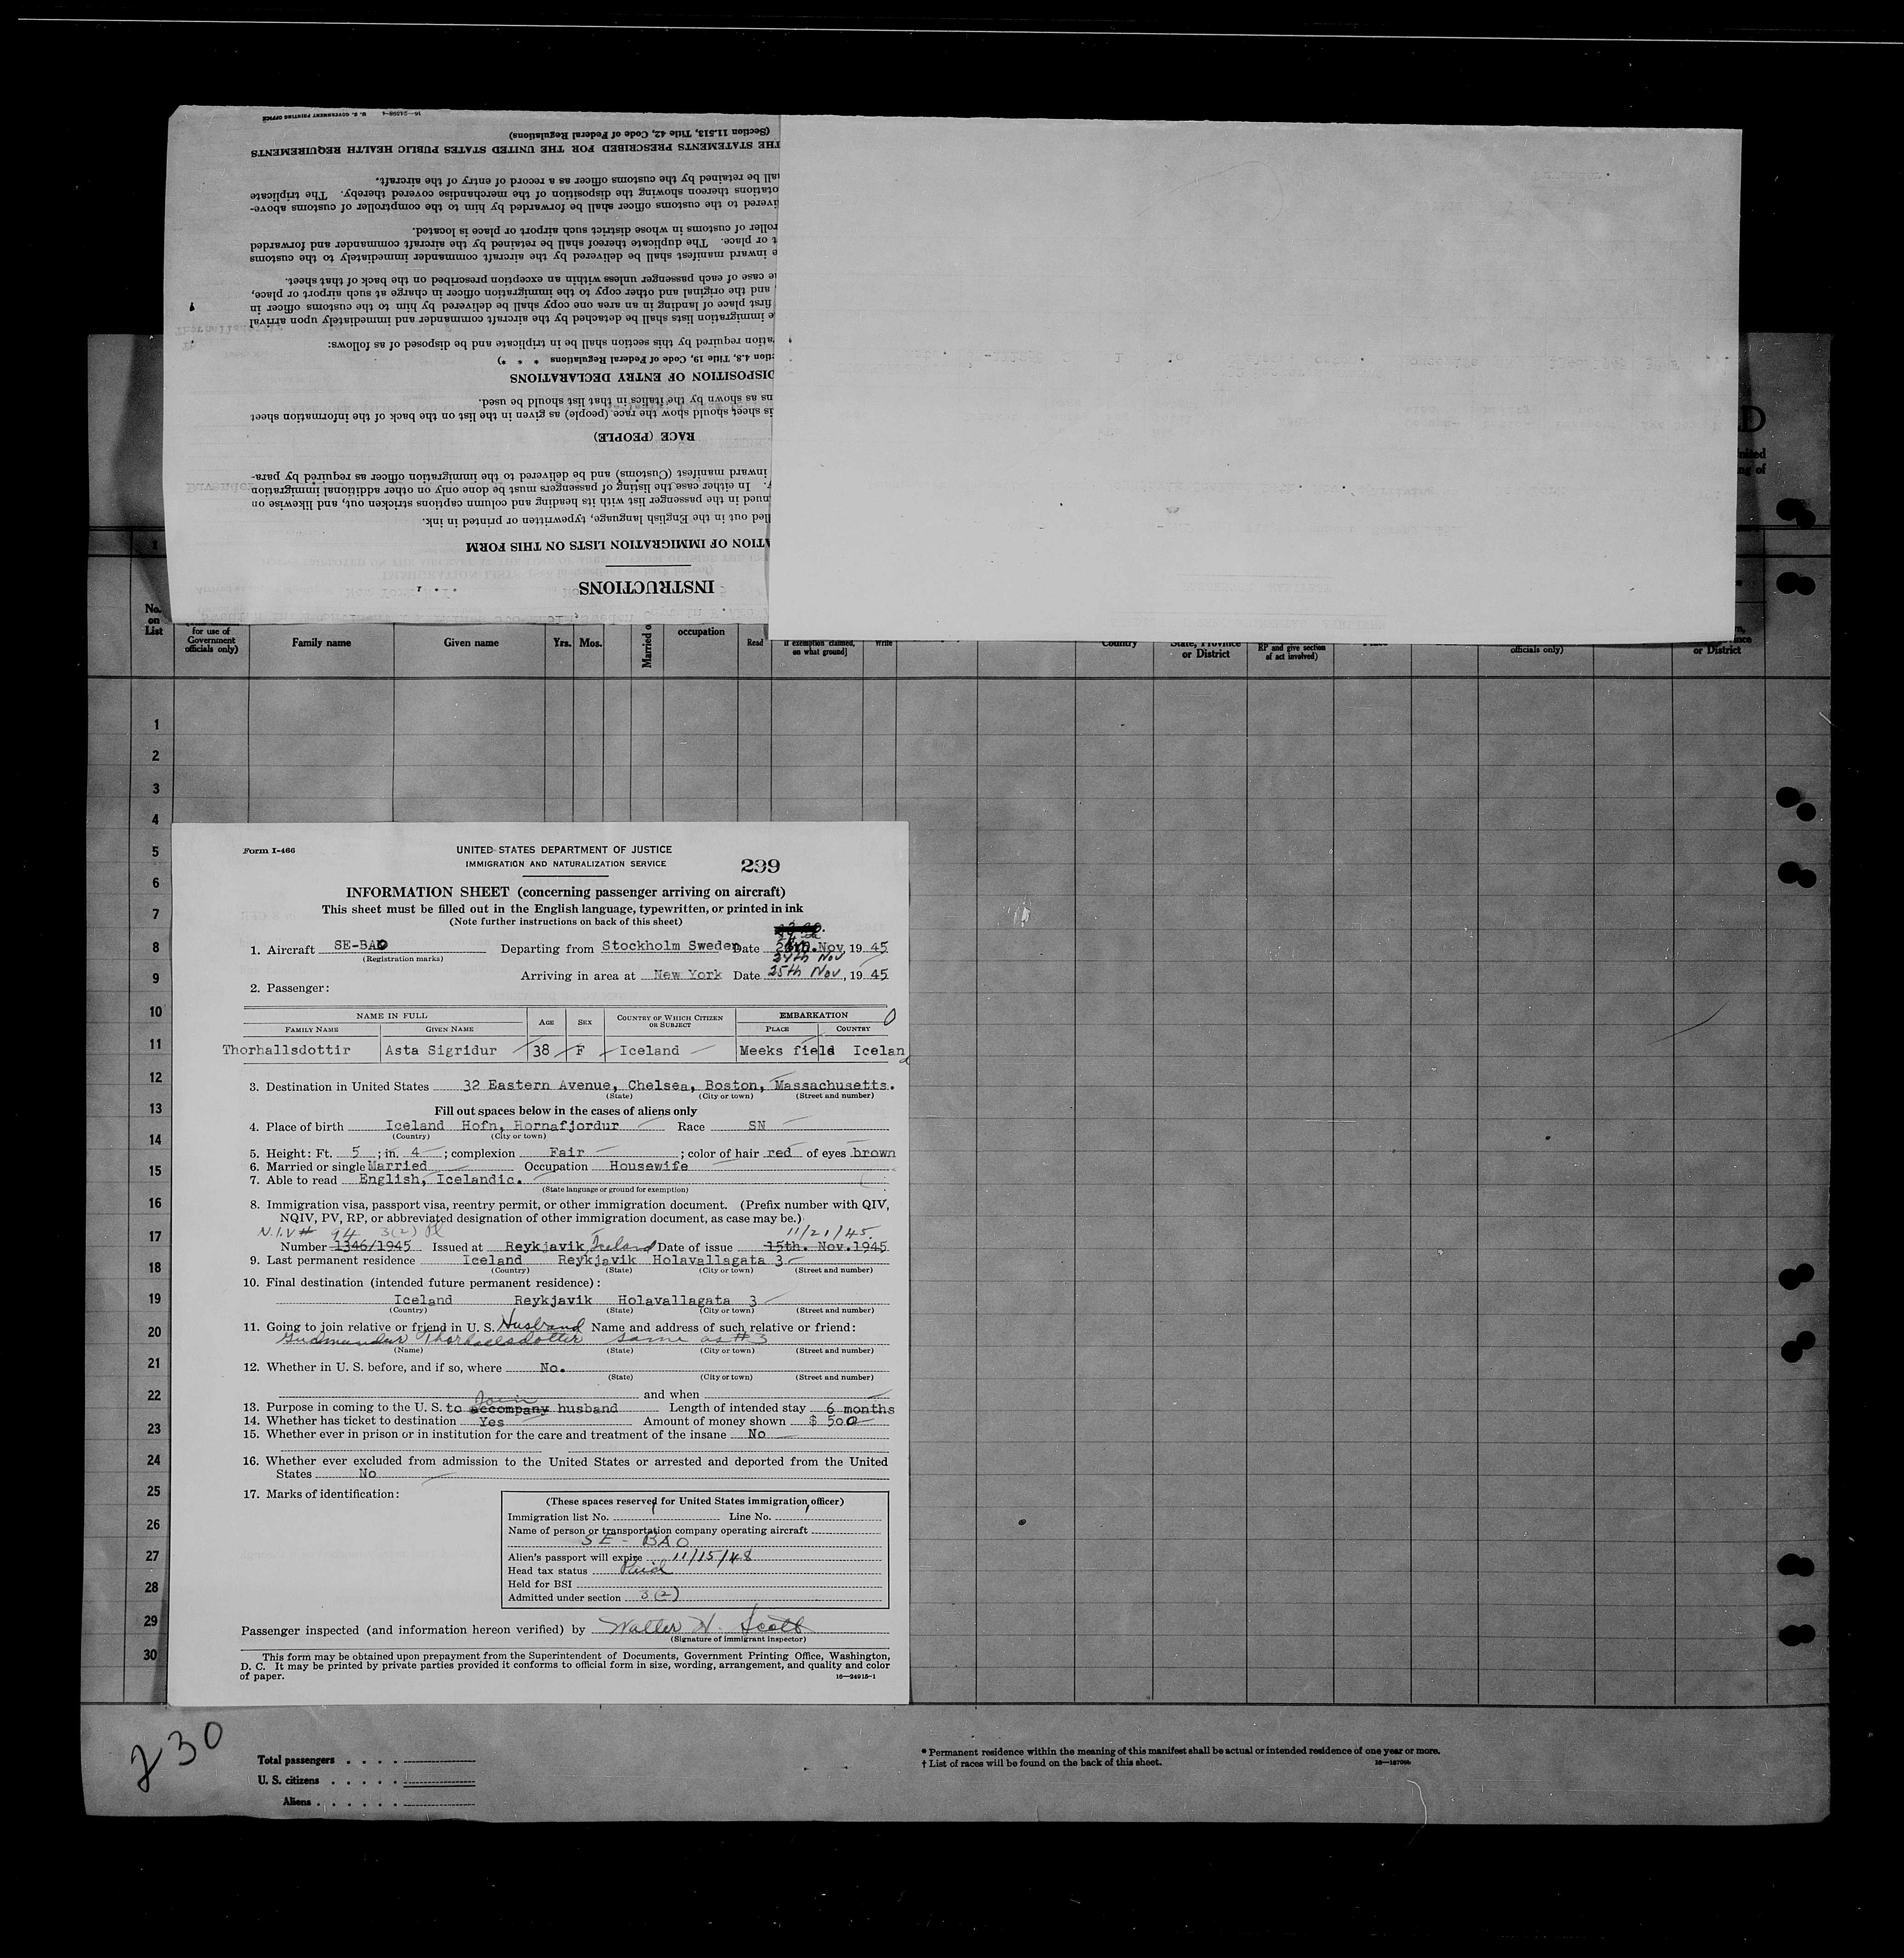 16—24598-4 U. S. GOVERNMENT PRINTING OFFICE
INSTRUCTIONS
ATION OF IMMIGRATION LISTS ON THIS FORM
lled out in the English language, typewritten or printed in ink.
nued in the passenger list with its heading and column captions stricken out, and likewise on
. In either case the listing of passengers must be done only on other additional immigration
inward manifest (Customs) and be delivered to the immigration officer as required by para-
RACE (PEOPLE)
is sheet should show the race (people) as given in the list on the back of the information sheet
ns as shown by the italics in that list should be used.
DISPOSITION OF ENTRY DECLARATIONS
tion 4.8, Title 19, Code of Federal Regulations * * *)
ation required by this section shall be in triplicate and be disposed of as follows:
e immigration lists shall be detached by the aircraft commander and immediately upon arrival
first place of landing in an area one copy shall be delivered by him to the customs officer in
and the original and other copy to the immigration officer in charge at such airport or place,
e case of each passenger unless within an exception prescribed on the back of that sheet.
e inward manifest shall be delivered by the aircraft commander immediately to the customs
t or place. The duplicate thereof shall be retained by the aircraft commander and forwarded
roller of customs in whose district such airport or place is located.
ivered to the customs officer shall be forwarded by him to the comptroller of customs above-
otations thereon showing the disposition of the merchandise covered thereby. The triplicate
all be retained by the customs officer as a record of entry of the aircraft.
THE STATEMENTS PRESCRIBED FOR THE UNITED STATES PUBLIC HEALTH REQUIREMENTS
(Section 11.513, Title 42, Code of Federal Regulations)
No. on List
for use of Government officials only)
Family name
Given name
Yrs. Mos.
Married o
occupation
Read
if exemption claimed, on what ground]
Write
Country
State, Province or District
RP and give section of act involved)
officials only)
or District
1
2
3
4
5
6
7
8
9
10
11
12
13
14
15
16
17
18
19
20
21
22
23
24
25
26
27
28
29
30
Form I-466
UNITED STATES DEPARTMENT OF JUSTICE
IMMIGRATION AND NATURALIZATION SERVICE
299
INFORMATION SHEET (concerning passenger arriving on aircraft)
This sheet must be filled out in the English language, typewritten, or printed in ink
(Note further instructions on back of this sheet)
1. Aircraft SE-BAO Departing from Stockholm Sweden Date Nov, 19 45
(Registration marks) 24th Nov
Arriving in area at New York Date 25th Nov, 19 45
2. Passenger:
NAME IN FULL AGE SEX COUNTRY OF WHICH CITIZEN OR SUBJECT EMBARKATION
FAMILY NAME GIVEN NAME PLACE COUNTRY
Thorhallsdottir Asta Sigridur 38 F Iceland Meeks field Iceland
3. Destination in United States 32 Eastern Avenue, Chelsea, Boston, Massachusetts.
(State) (City or town) (Street and number)
Fill out spaces below in the cases of aliens only
4. Place of birth Iceland Hofn, Hornafjordur Race SN
(Country) (City or town)
5. Height: Ft. 5; in. 4; complexion Fair; color of hair red of eyes brown
6. Married or single Married Occupation Housewife
7. Able to read English, Icelandic.
(State language or ground for exemption)
8. Immigration visa, passport visa, reentry permit, or other immigration document. (Prefix number with QIV,
NQIV, PV, RP, or abbreviated designation of other immigration document, as case may be.)
N.I.V# 94 3(2) 11/21/45.
Number 1346/1945 Issued at Reykjavik, Iceland Date of issue 15th. Nov.1945
9. Last permanent residence Iceland Reykjavik Holavallagata 3
(Country) (State) (City or town) (Street and number)
10. Final destination (intended future permanent residence):
Iceland Reykjavik Holavallagata 3
(Country) (State) (City or town) (Street and number)
11. Going to join relative or friend in U. S. Husband Name and address of such relative or friend:
Gudmundur Thorhallsdotter same as #3
(Name) (State) (City or town) (Street and number)
12. Whether in U. S. before, and if so, where No.
(State) (City or town) (Street and number)
and when
Join
13. Purpose in coming to the U. S. to accompany husband Length of intended stay 6 months
14. Whether has ticket to destination Yes Amount of money shown $ 500
15. Whether ever in prison or in institution for the care and treatment of the insane No
16. Whether ever excluded from admission to the United States or arrested and deported from the United
States No
17. Marks of identification:
(These spaces reserved for United States immigration officer)
Immigration list No. 1 Line No. 1
Name of person or transportation company operating aircraft
SE-BAO
Alien's passport will expire 11/15/48
Head tax status Paid
Held for BSI
Admitted under section 3(2)
Passenger inspected (and information hereon verified) by Walter H. Scott
(Signature of immigrant inspector)
This form may be obtained upon prepayment from the Superintendent of Documents, Government Printing Office, Washington,
D. C. It may be printed by private parties provided it conforms to official form in size, wording, arrangement, and quality and color
of paper. 16—24915-1
230
Total passengers . . . .
U. S. citizens . . . . .
Aliens . . . . . .
* Permanent residence within the meaning of this manifest shall be actual or intended residence of one year or more.
† List of races will be found on the back of this sheet.